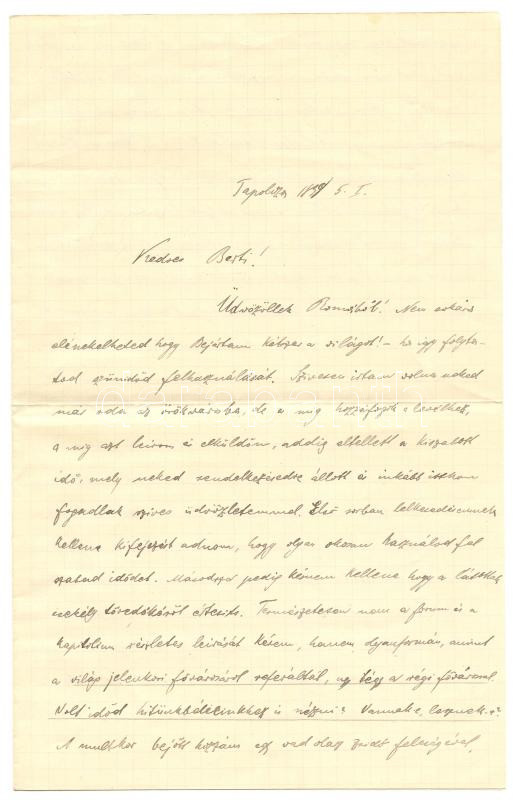 Tapolcza 5. I.
Kedves Berti!
Üdvözöllek Romából! Nem sokára
elénekelheted hogy Bejártam kétszer a világot! – ha így folyta-
tod szünidőd felhasználását. Szivesen irtam volna neked
már oda az örökvárosba, de a mig hozzáfogok a levélhez,
a mig azt leirom és elküldöm, addig eltellett a kiszabott
idő, mely neked rendelkezésedre állott és inkább itthon
fogadlak szives üdvözletemmel. Első sorban lelkesedésemnek
kellene kifejezést adnom, hogy olyan okosan használod fel
szabad idődet. Másodszor pedig kérnem kellene hogy a látottak
csekély töredékéről értesits. Természetesen nem a forum és a
Kapitolium részletes leirását kérem, hanem olyanformán, amint
a világ jelenkori fővárosáról referáltál, úgy tégy a régi fővárossal.
Volt időd hitünkbélieinkhez is nézni? Vannak-e, lesznek-e?
A multkor bejött hozzám egy vad olasz zsidó feleségével,